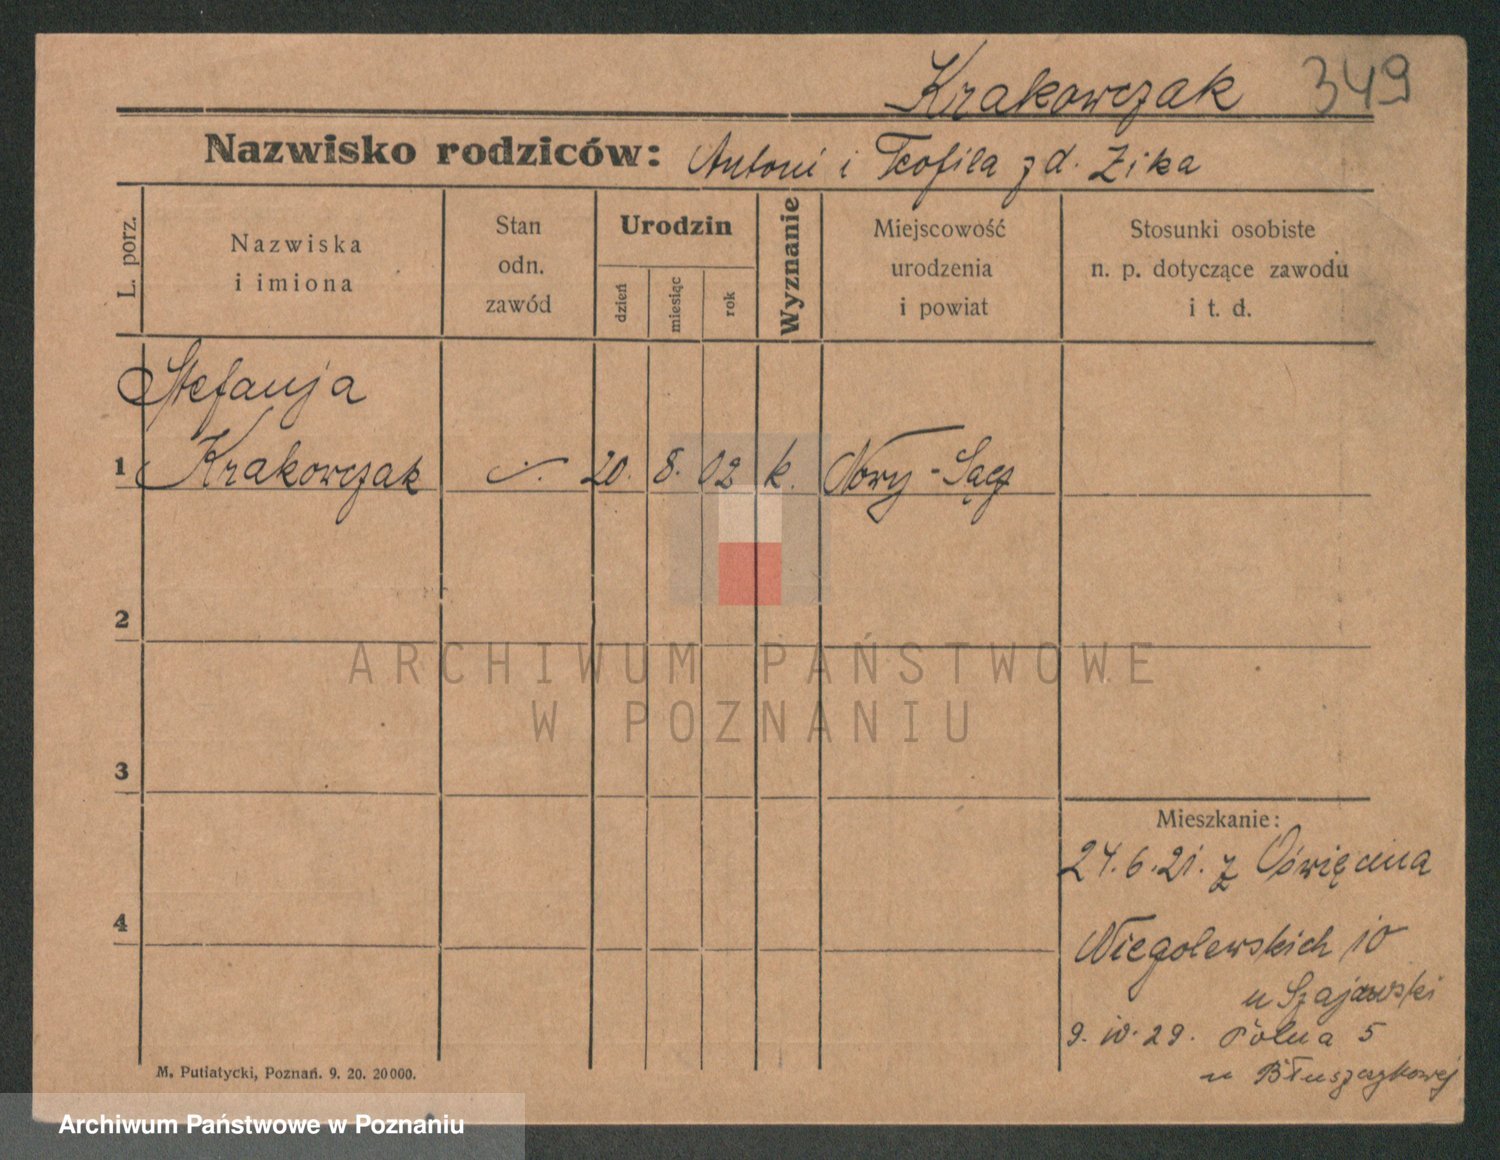 Krakowczak 349
Nazwisko rodziców: Antoni i Teofila z d. Zika
L. porz.
Nazwiska
i imiona
Stan
odn.
zawód
Urodzin
dzień
miesiąc
rok
Wyznanie
Miejscowość
urodzenia
i powiat
Stosunki osobiste
n. p. dotyczące zawodu
i t. d.
Stefanja
1 Krakowczak 20. 8. 02 k. Nowy-Sącz
2
ARCHIWUM PAŃSTWOWE
W POZNANIU
3
Mieszkanie:
24.6.21. z Oświęcima
4
Niegolewskich 10
u Szajawski
9. 10. 29. Polna 5
u Błuszczykowej
M. Putiatycki, Poznań. 9. 20. 20000.
Archiwum Państwowe w Poznaniu